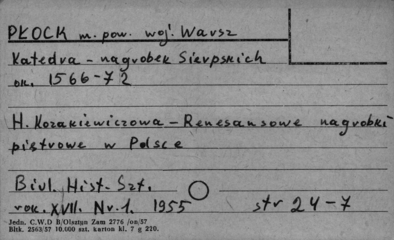 PŁOCK m. pow. woj. Warsz
Katedra - nagrobek Sierpskich
ok. 1566-72
H. Kozakiewiczowa - Renesansowe nagrobki
piętrowe w Polsce
Biul. Hist. Szt.
rok. XVII. Nr. 1. 1955 str 24-7
Jedn. C.W.D B/Olsztyn Zam 2776 /on/57
Bltk. 2563/57 10.000 szt. karton kl. 7 g 220.